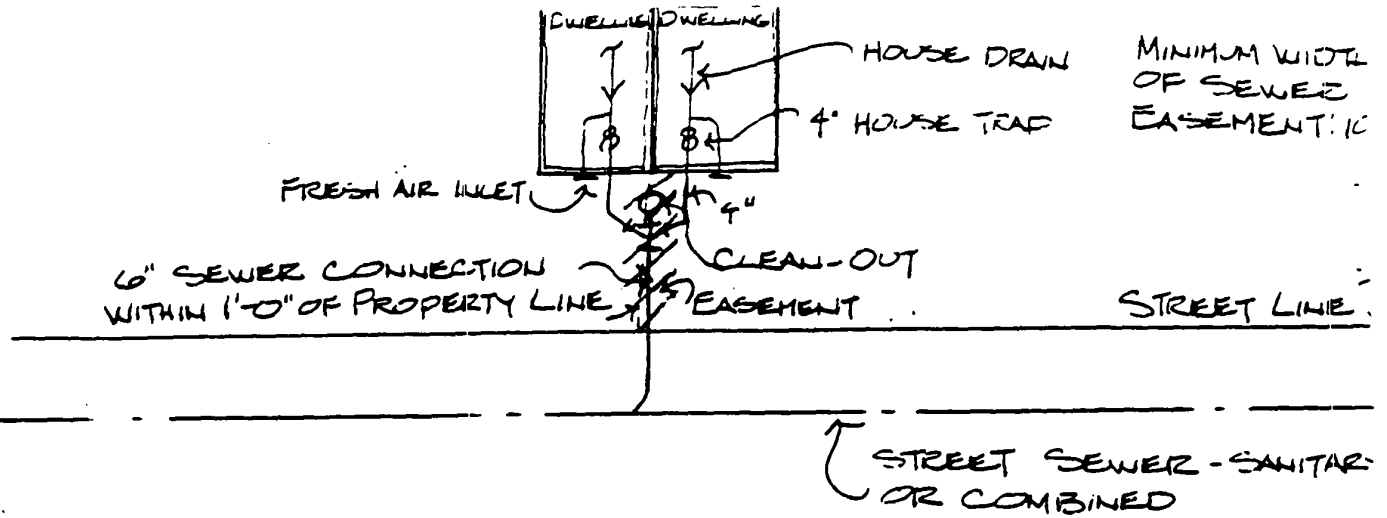 DWELLING DWELLING
HOUSE DRAIN
4" HOUSE TRAP
MINIMUM WIDTH
OF SEWER
EASEMENT: 10
FRESH AIR INLET
4"
CLEAN-OUT
6" SEWER CONNECTION
WITHIN 1'-0" OF PROPERTY LINE
EASEMENT
STREET LINE
STREET SEWER - SANITAR
OR COMBINED